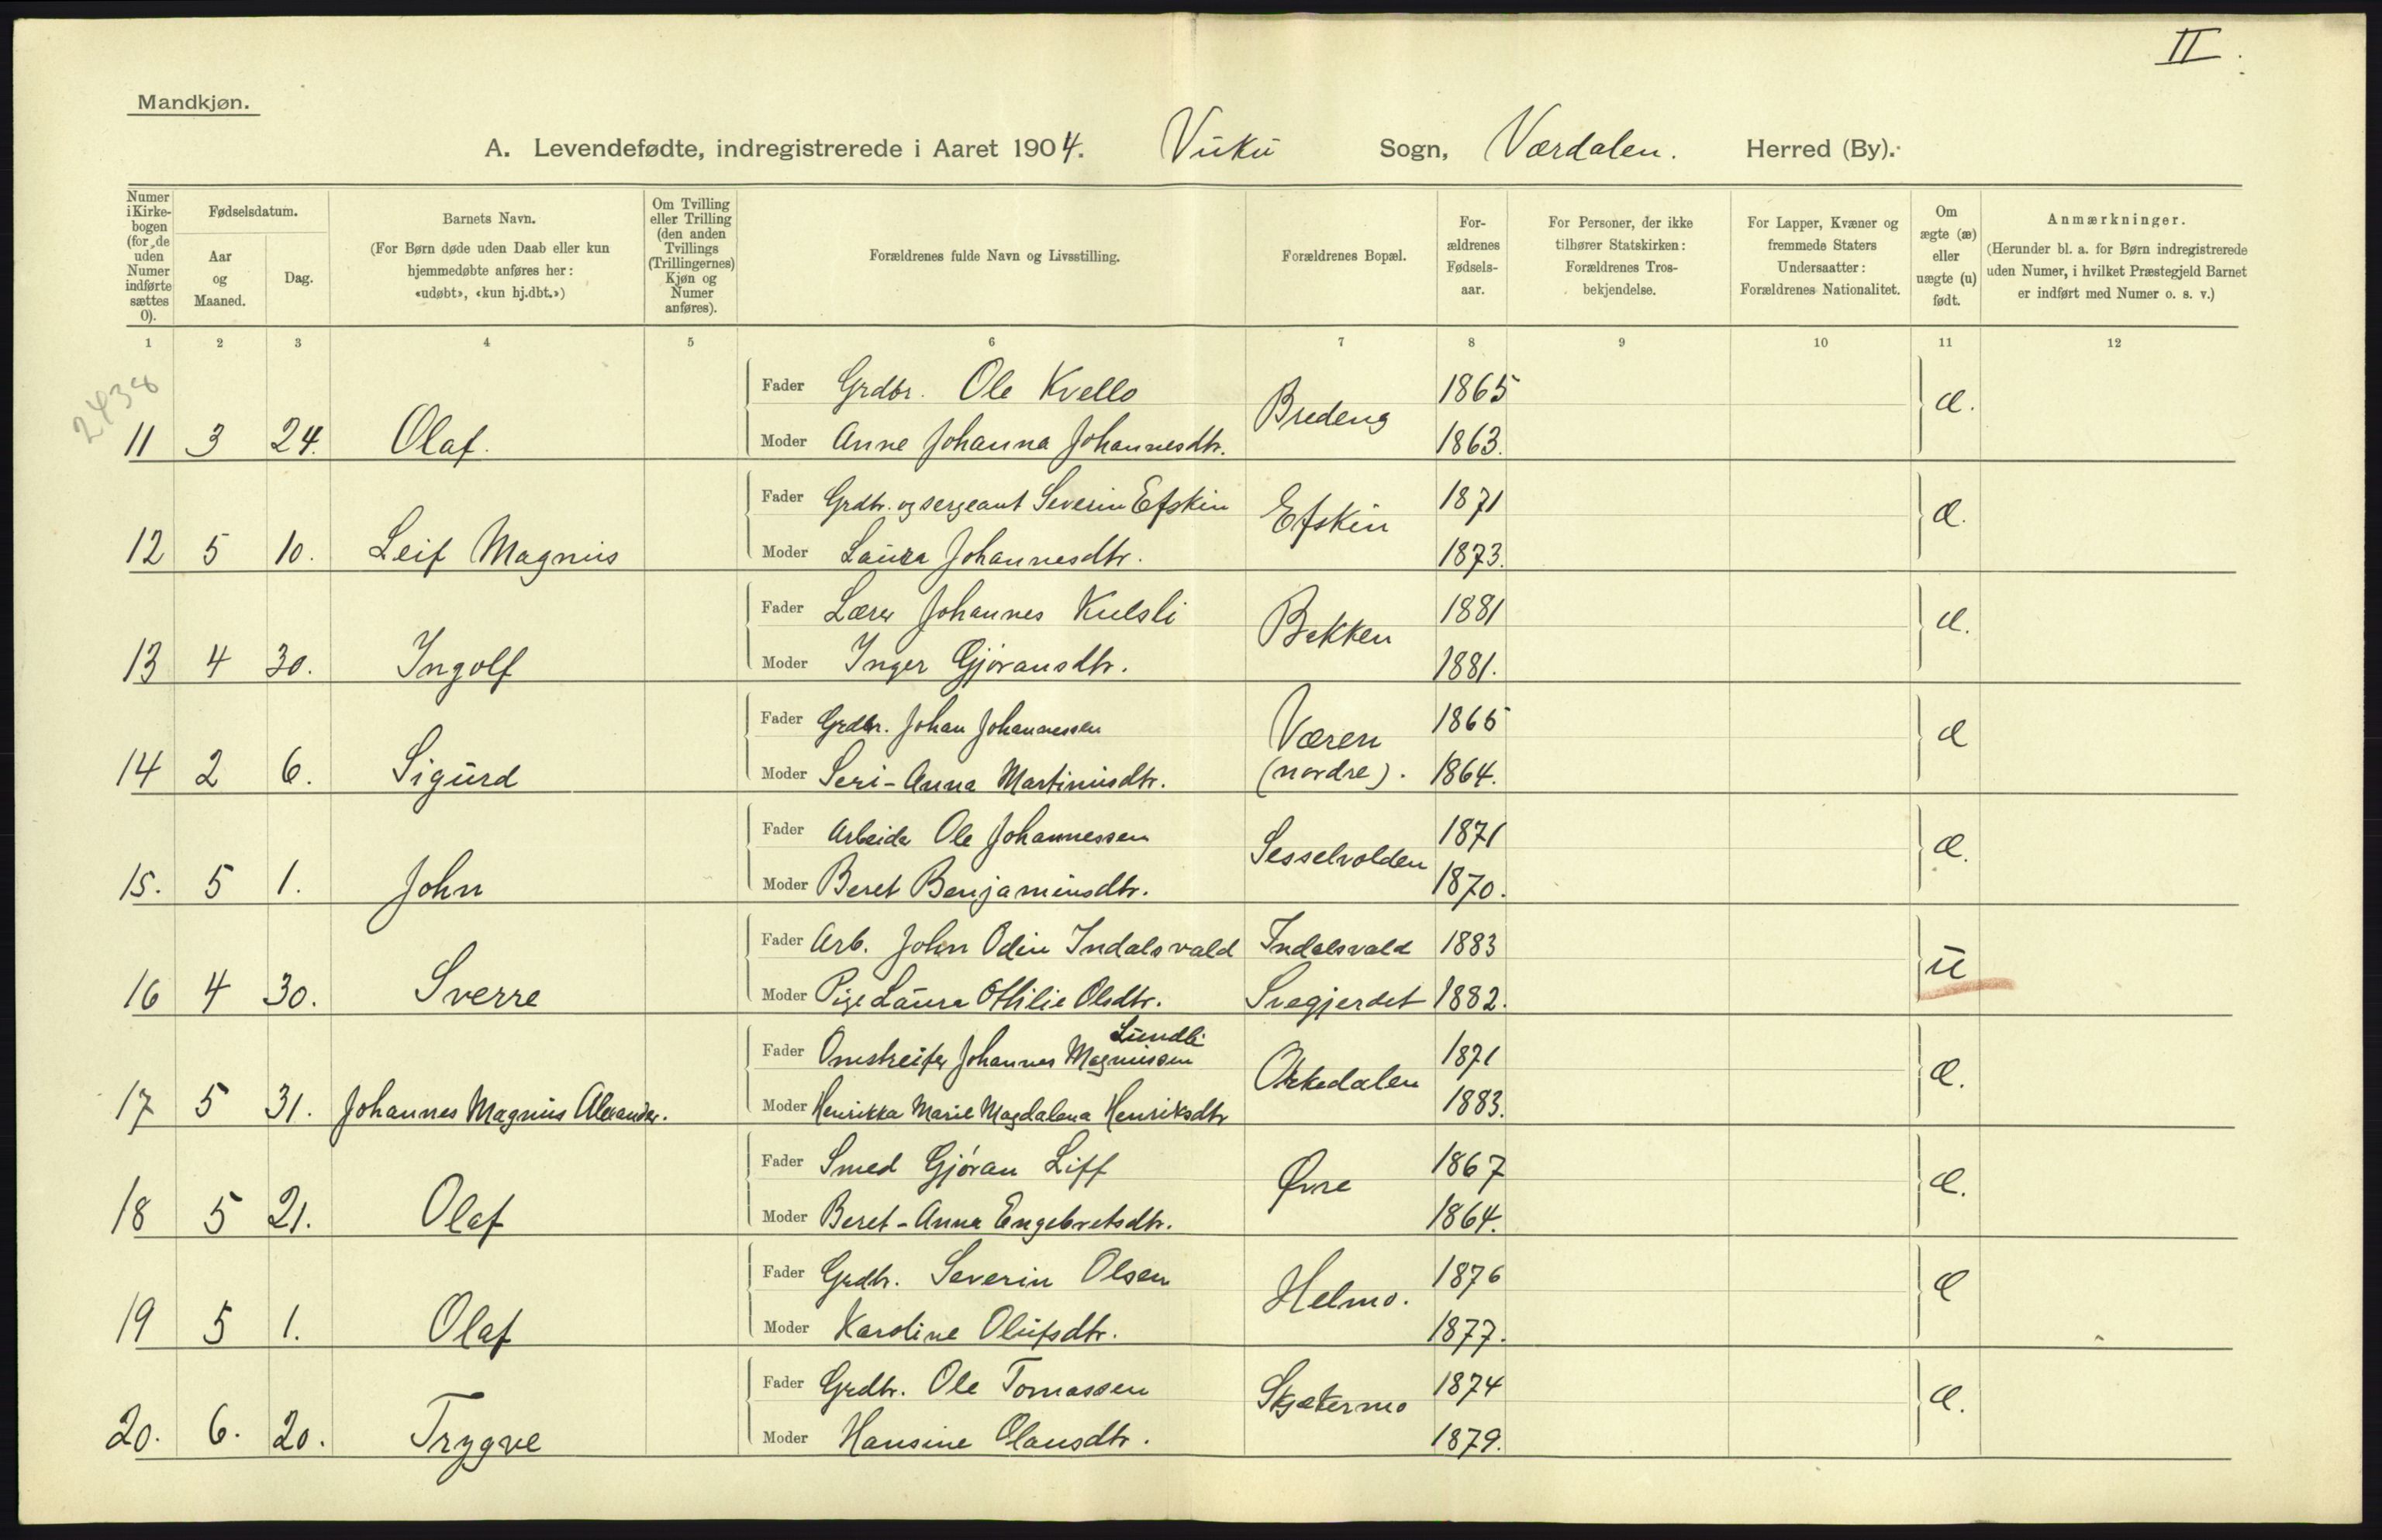 II.
Mandkjøn.
A. Levendefødte, indregistrerede i Aaret 1904. Vuku Sogn, Værdalen. Herred (By).
Numer i Kirke-bogen (for de uden Numer indførte sættes 0).
Fødselsdatum.
Aar og Maaned.
Dag.
Barnets Navn.
(For Børn døde uden Daab eller kun hjemmedøbte anføres her: «udøbt», «kun hj.dbt.»)
Om Tvilling eller Trilling (den anden Tvillings (Trillingernes) Kjøn og Numer anføres).
Forældrenes fulde Navn og Livsstilling.
Forældrenes Bopæl.
For-ældrenes Fødsels-aar.
For Personer, der ikke tilhører Statskirken: Forældrenes Tros-bekjendelse.
For Lapper, Kvæner og fremmede Staters Undersaatter: Forældrenes Nationalitet.
Om ægte (æ) eller uægte (u) født.
Anmærkninger.
(Herunder bl. a. for Børn indregistrerede uden Numer, i hvilket Præstegjeld Barnet er indført med Numer o. s. v.)
1 2 3 4 5 6 7 8 9 10 11 12
2438
Fader Grdbr. Ole Kvello Bredeng 1865 æ.
11 3 24. Olaf. Moder Anne Johanna Johannesdtr. 1863.
Fader Grdbr. og sergeant Severin Efskin Efskin 1871 æ.
12 5 10. Leif Magnus Moder Laura Johannesdtr. 1873.
Fader Lærer Johannes Kulsli Bekken 1881 æ.
13 4 30. Ingolf Moder Inger Gjøransdtr. 1881.
Fader Grdbr. Johan Johannessen Væren 1865 æ
14 2 6. Sigurd Moder Seri-Anna Martinusdtr. (nordre). 1864.
Fader Arbeider Ole Johannessen Sesselvolden 1871 æ.
15. 5 1. John Moder Beret Benjaminsdtr. 1870.
Fader Arb. John Odin Indalsvald Indalsvald 1883 u
16 4 30. Sverre Moder Pige Laura Otilie Olsdtr. Svegjerdet 1882.
Lundli
Fader Omstreifer Johannes Magnussen Orkedalen 1871 æ.
17 5 31. Johannes Magnus Alexander. Moder Henrikka Marie Magdalena Henriksdtr 1883.
Fader Smed Gjøran Liff Øvre 1867 æ.
18 5 21. Olaf Moder Beret-Anna Engebretsdtr. 1864.
Fader Grdbr. Severin Olsen Helmo. 1876 æ
19 5 1. Olaf Moder Karoline Olufsdtr. 1877.
Fader Grdbr. Ole Tomassen Skjækermo 1874 æ.
20. 6. 20. Trygve Moder Hansine Olausdtr. 1879.